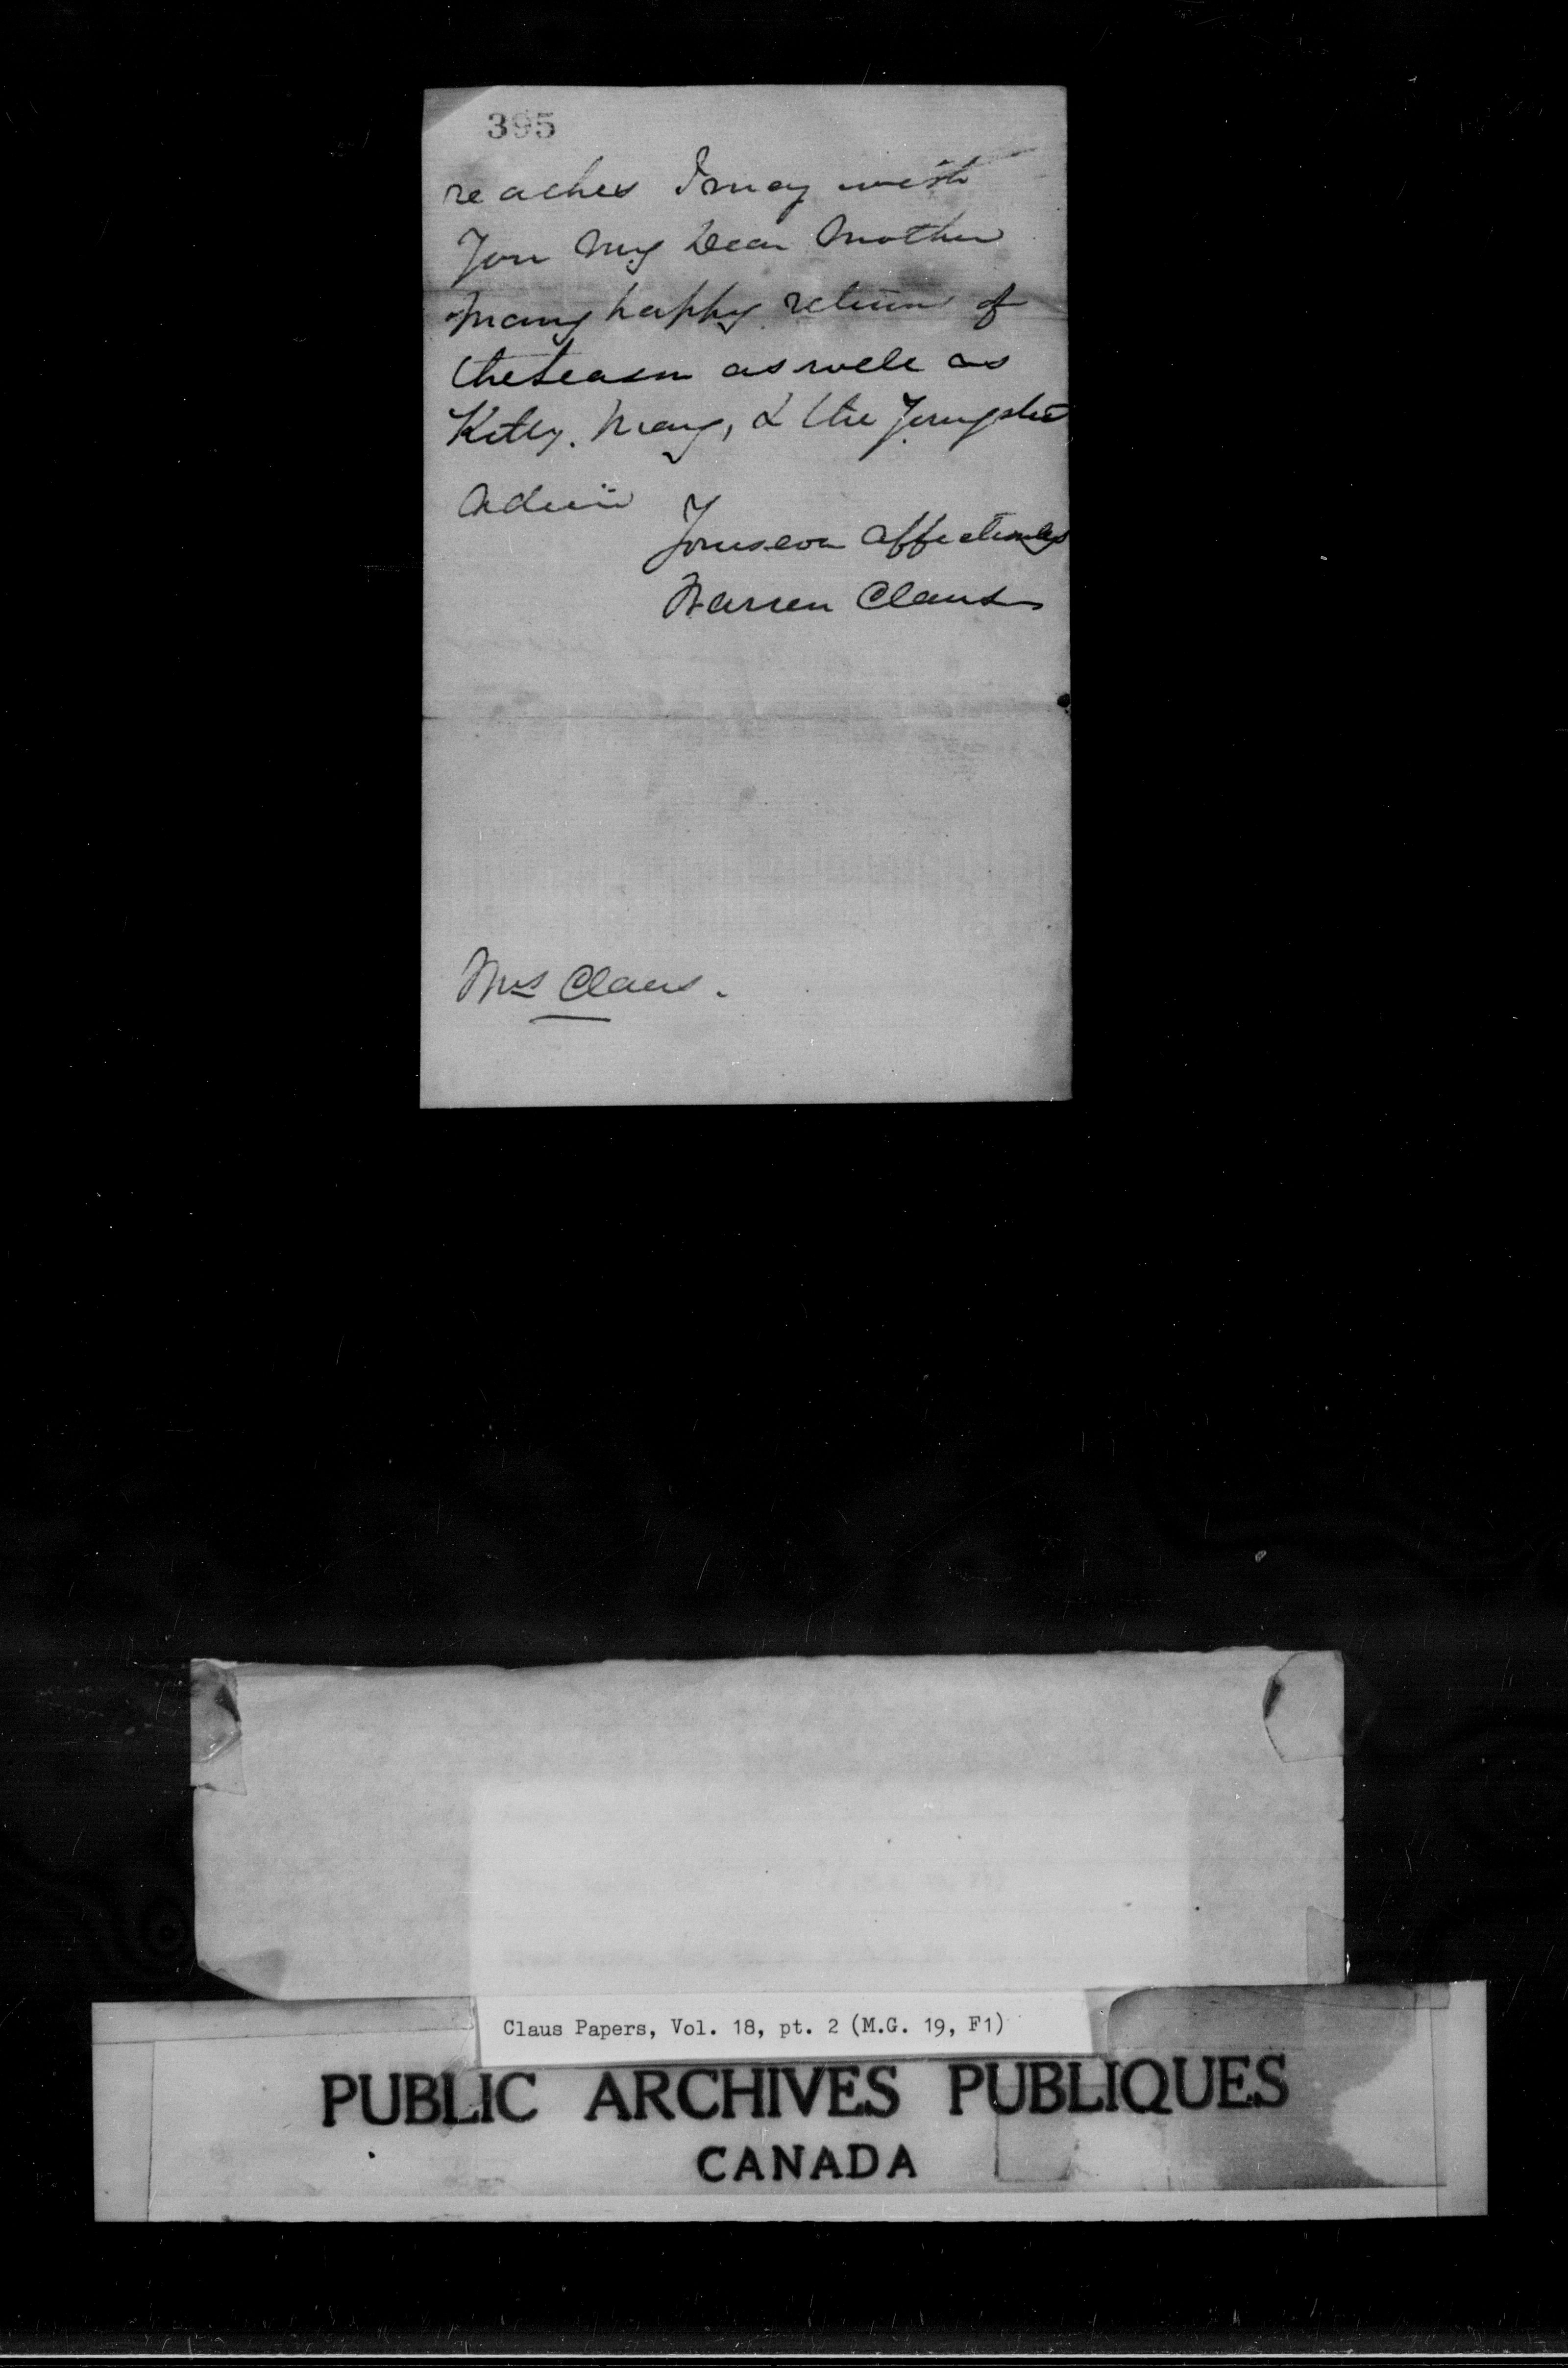 395
reaches I may wish
You My Dear Mother
Many happy returns of
the Season as well as
Kitty, Mary, & the Youngster
Adieu
Yours ever affectionately
Warren Claus
Mrs Claus.
Claus Papers, Vol. 18, pt. 2 (M.G. 19, F1)
PUBLIC ARCHIVES PUBLIQUES
CANADA